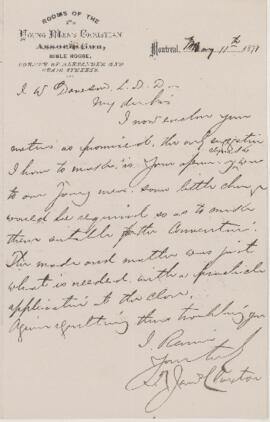 ROOMS OF THE
Young Men's Christian
Association,
BIBLE HOUSE,
CORNER OF ALEXANDER AND
CRAIG STREETS.
Montreal, May 11th 1871
J. W. Dawson, L.L.D.
My dear Sir
I now enclose your
notices as promised, the only suggestion
I have to make is. Your
to our Young men. Some little change
would be required so as to make
them suitable for the Convention.
The mode and matter was just
what is needed, with a practical
application at the close.
Again regretting thus troubling you
I Remain
Yours truly
Claxton